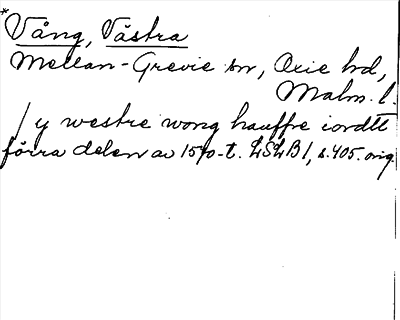 *
Vång, Västra
Mellan-Grevie sn, Oxie hd,
Malm. l.
/ y westre wong hauffre iordtt
förra delen av 1570-t. LSLB1, s. 405. orig.